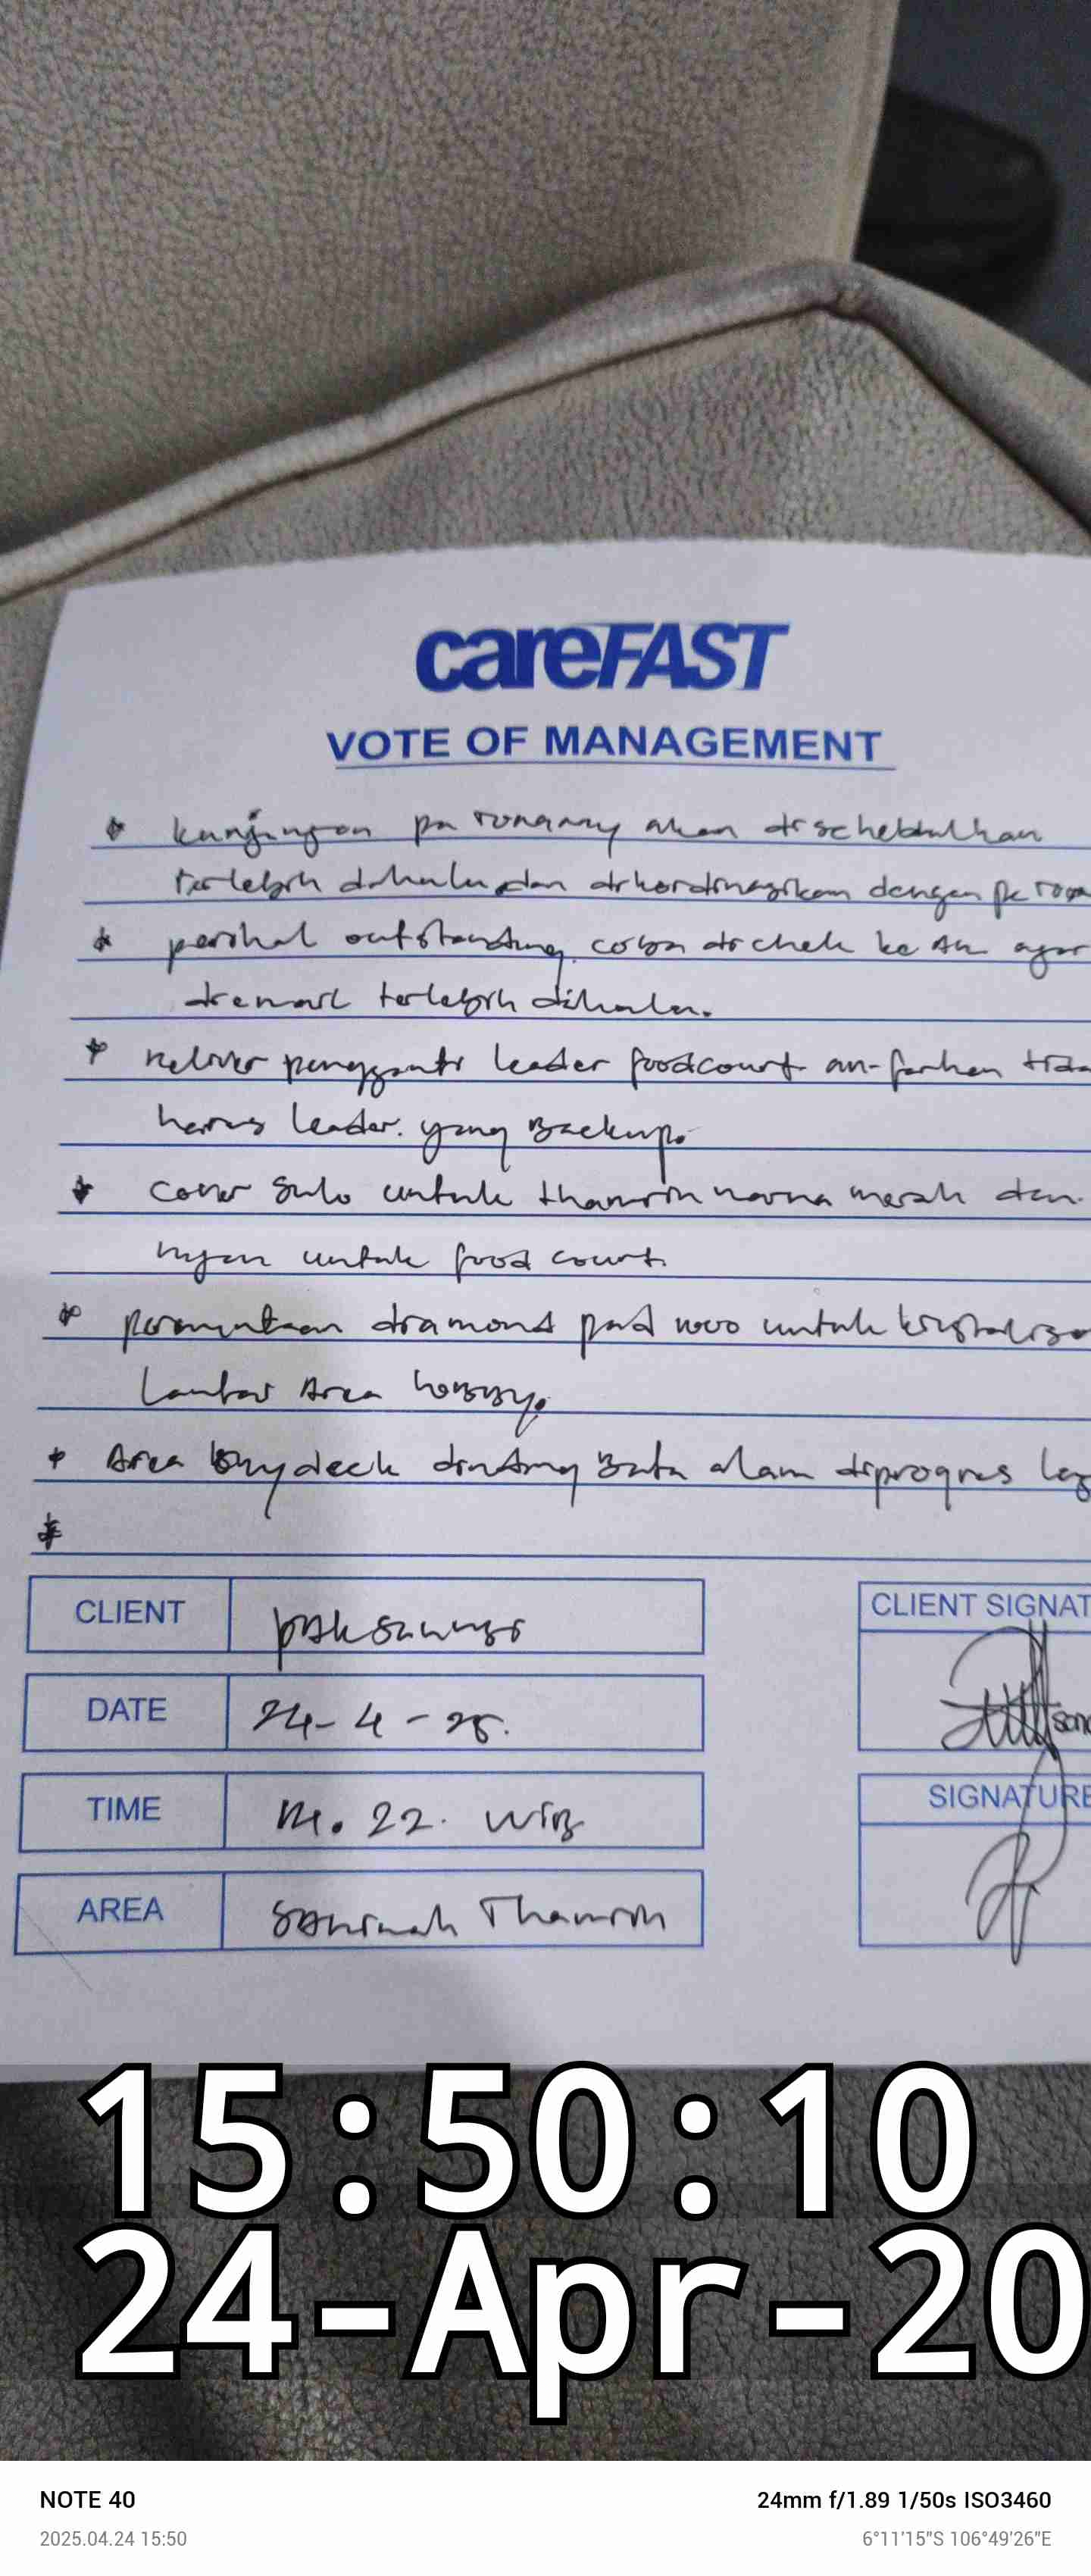 careFAST
VOTE OF MANAGEMENT
* kunjungan pa akan dischedulkan
terlebih dahulu dan dikordinasikan dengan pa
* perihal outstanding coba di chek ke agar
diemail terlebih dahulu.
* reliver pengganti leader foodcourt an-farhan tida
harus leader. yang Backup.
* cover sulo untuk thamrin warna merah dan
hijau untuk food court.
* permintaan diamond pad untuk kristalisa
Lantai Area lobby.
* Area skydeck dinding Batu alam diprogres lag
*
CLIENT
pak
CLIENT SIGNAT
DATE
24-4-25.
TIME
22. WIB
SIGNATURE
AREA
Sarinah Thamrin
15:50:10
24-Apr-20
NOTE 40
24mm f/1.89 1/50s ISO3460
2025.04.24 15:50
6°11'15"S 106°49'26"E